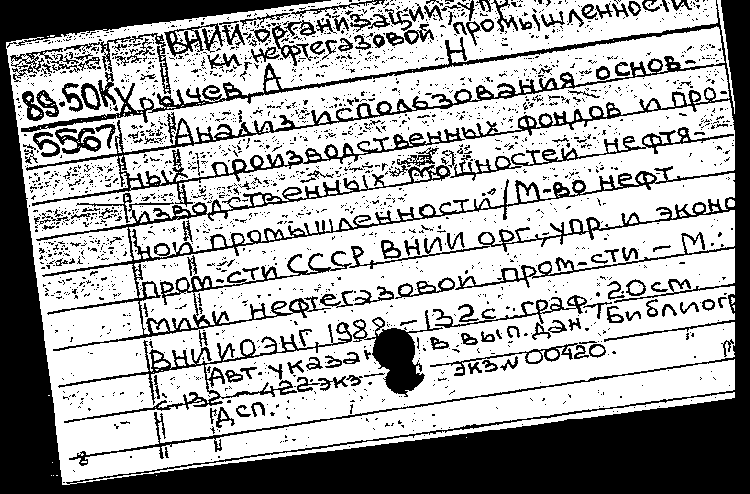 ВНИИ организаций, упр.
ки, нефтегазовой промышленности
89-50К Хрычев, А Н
5567 Анализ использования основ-
ных производственных фондов и про-
изводственных мощностей нефтя-
ной промышленности/М-во нефт.
пром-сти СССР, ВНИИ орг., упр. и эконо
мики нефтегазовой пром-сти. - М.:
ВНИИОЭНГ, 1988. - 132 с.: граф.; 20 см.
Авт. указан в вып. дан. Библиогр
с. 132. - 422 экз. экз. N 00420.
ДСП.
8